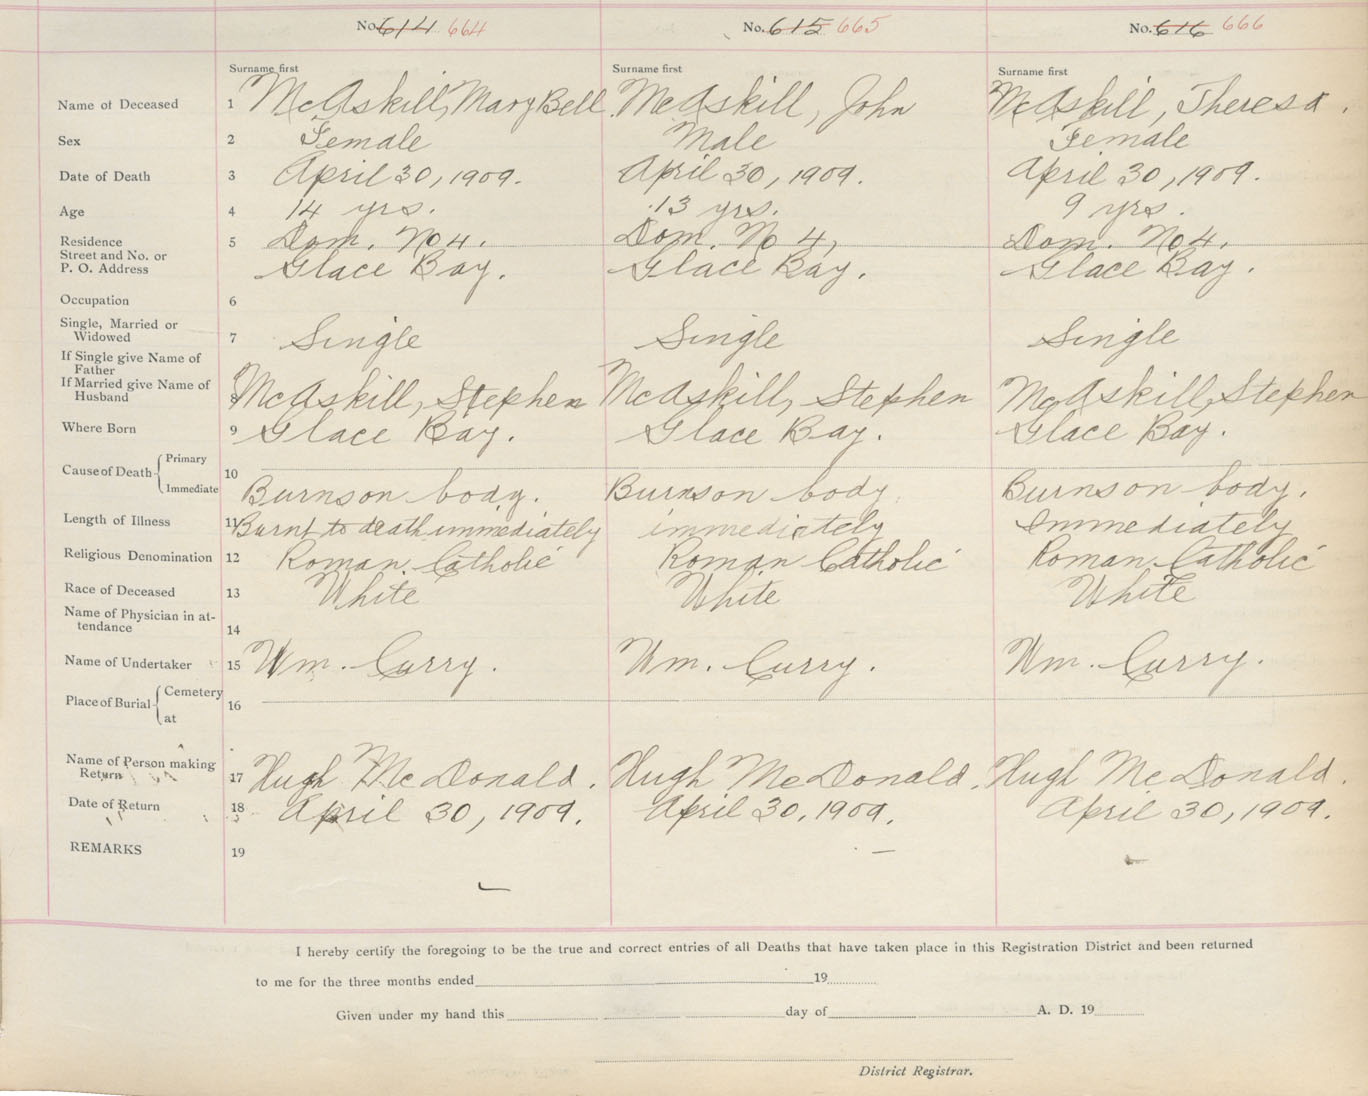 No. 614 664 No. 615 665 No. 616 666
Surname first Surname first Surname first
Name of Deceased 1 McAskill, Mary Bell. McAskill, John McAskill, Theresa.
Sex 2 Female Male Female
Date of Death 3 April 30, 1909. April 30, 1909. April 30, 1909.
Age 4 14 yrs. 13 yrs. 9 yrs.
Residence 5 Dom. No 4. Dom. No 4, Dom. No 4.
Street and No. or
P. O. Address Glace Bay. Glace Bay. Glace Bay.
Occupation 6
Single, Married or
Widowed 7 Single Single Single
If Single give Name of
Father
If Married give Name of
Husband 8 McAskill, Stephen McAskill, Stephen McAskill, Stephen
Where Born 9 Glace Bay. Glace Bay. Glace Bay.
Cause of Death Primary 10
Immediate Burns on body. Burns on body Burns on body.
Length of Illness 11 Burnt to death immediately immediately Immediately
Religious Denomination 12 Roman Catholic Roman Catholic Roman Catholic
Race of Deceased 13 White White White
Name of Physician in at-
tendance 14
Name of Undertaker 15 Wm. Curry. Wm. Curry. Wm. Curry.
Place of Burial Cemetery 16
at
Name of Person making
Return 17 Hugh McDonald. Hugh McDonald. Hugh McDonald.
Date of Return 18 April 30, 1909. April 30, 1909. April 30, 1909.
REMARKS 19
I hereby certify the foregoing to be the true and correct entries of all Deaths that have taken place in this Registration District and been returned
to me for the three months ended 19
Given under my hand this day of A. D. 19
District Registrar.